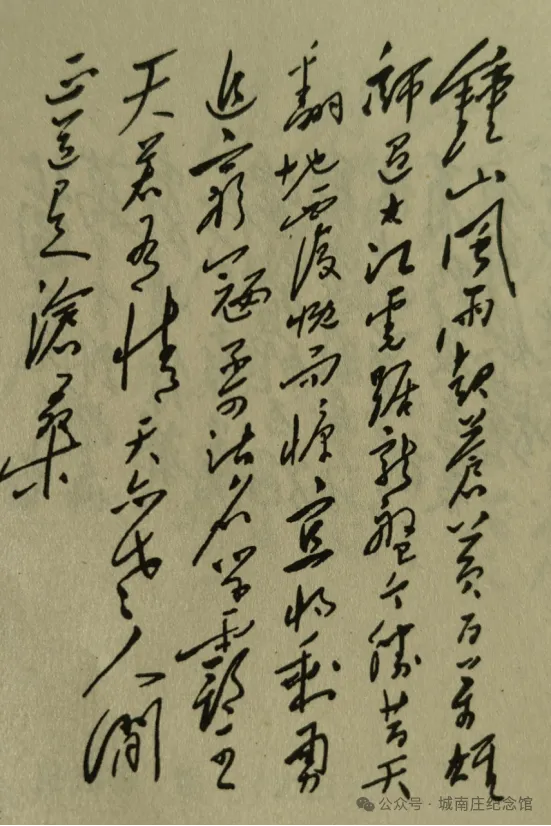 鍾山風雨起蒼黄百万雄
師过大江虎踞龍盤今勝昔天
翻地覆慨而慷宜将剩勇
追窮寇不可沽名学霸王
天若有情天亦老人間
正道是滄桑
公众号·城南庄纪念馆